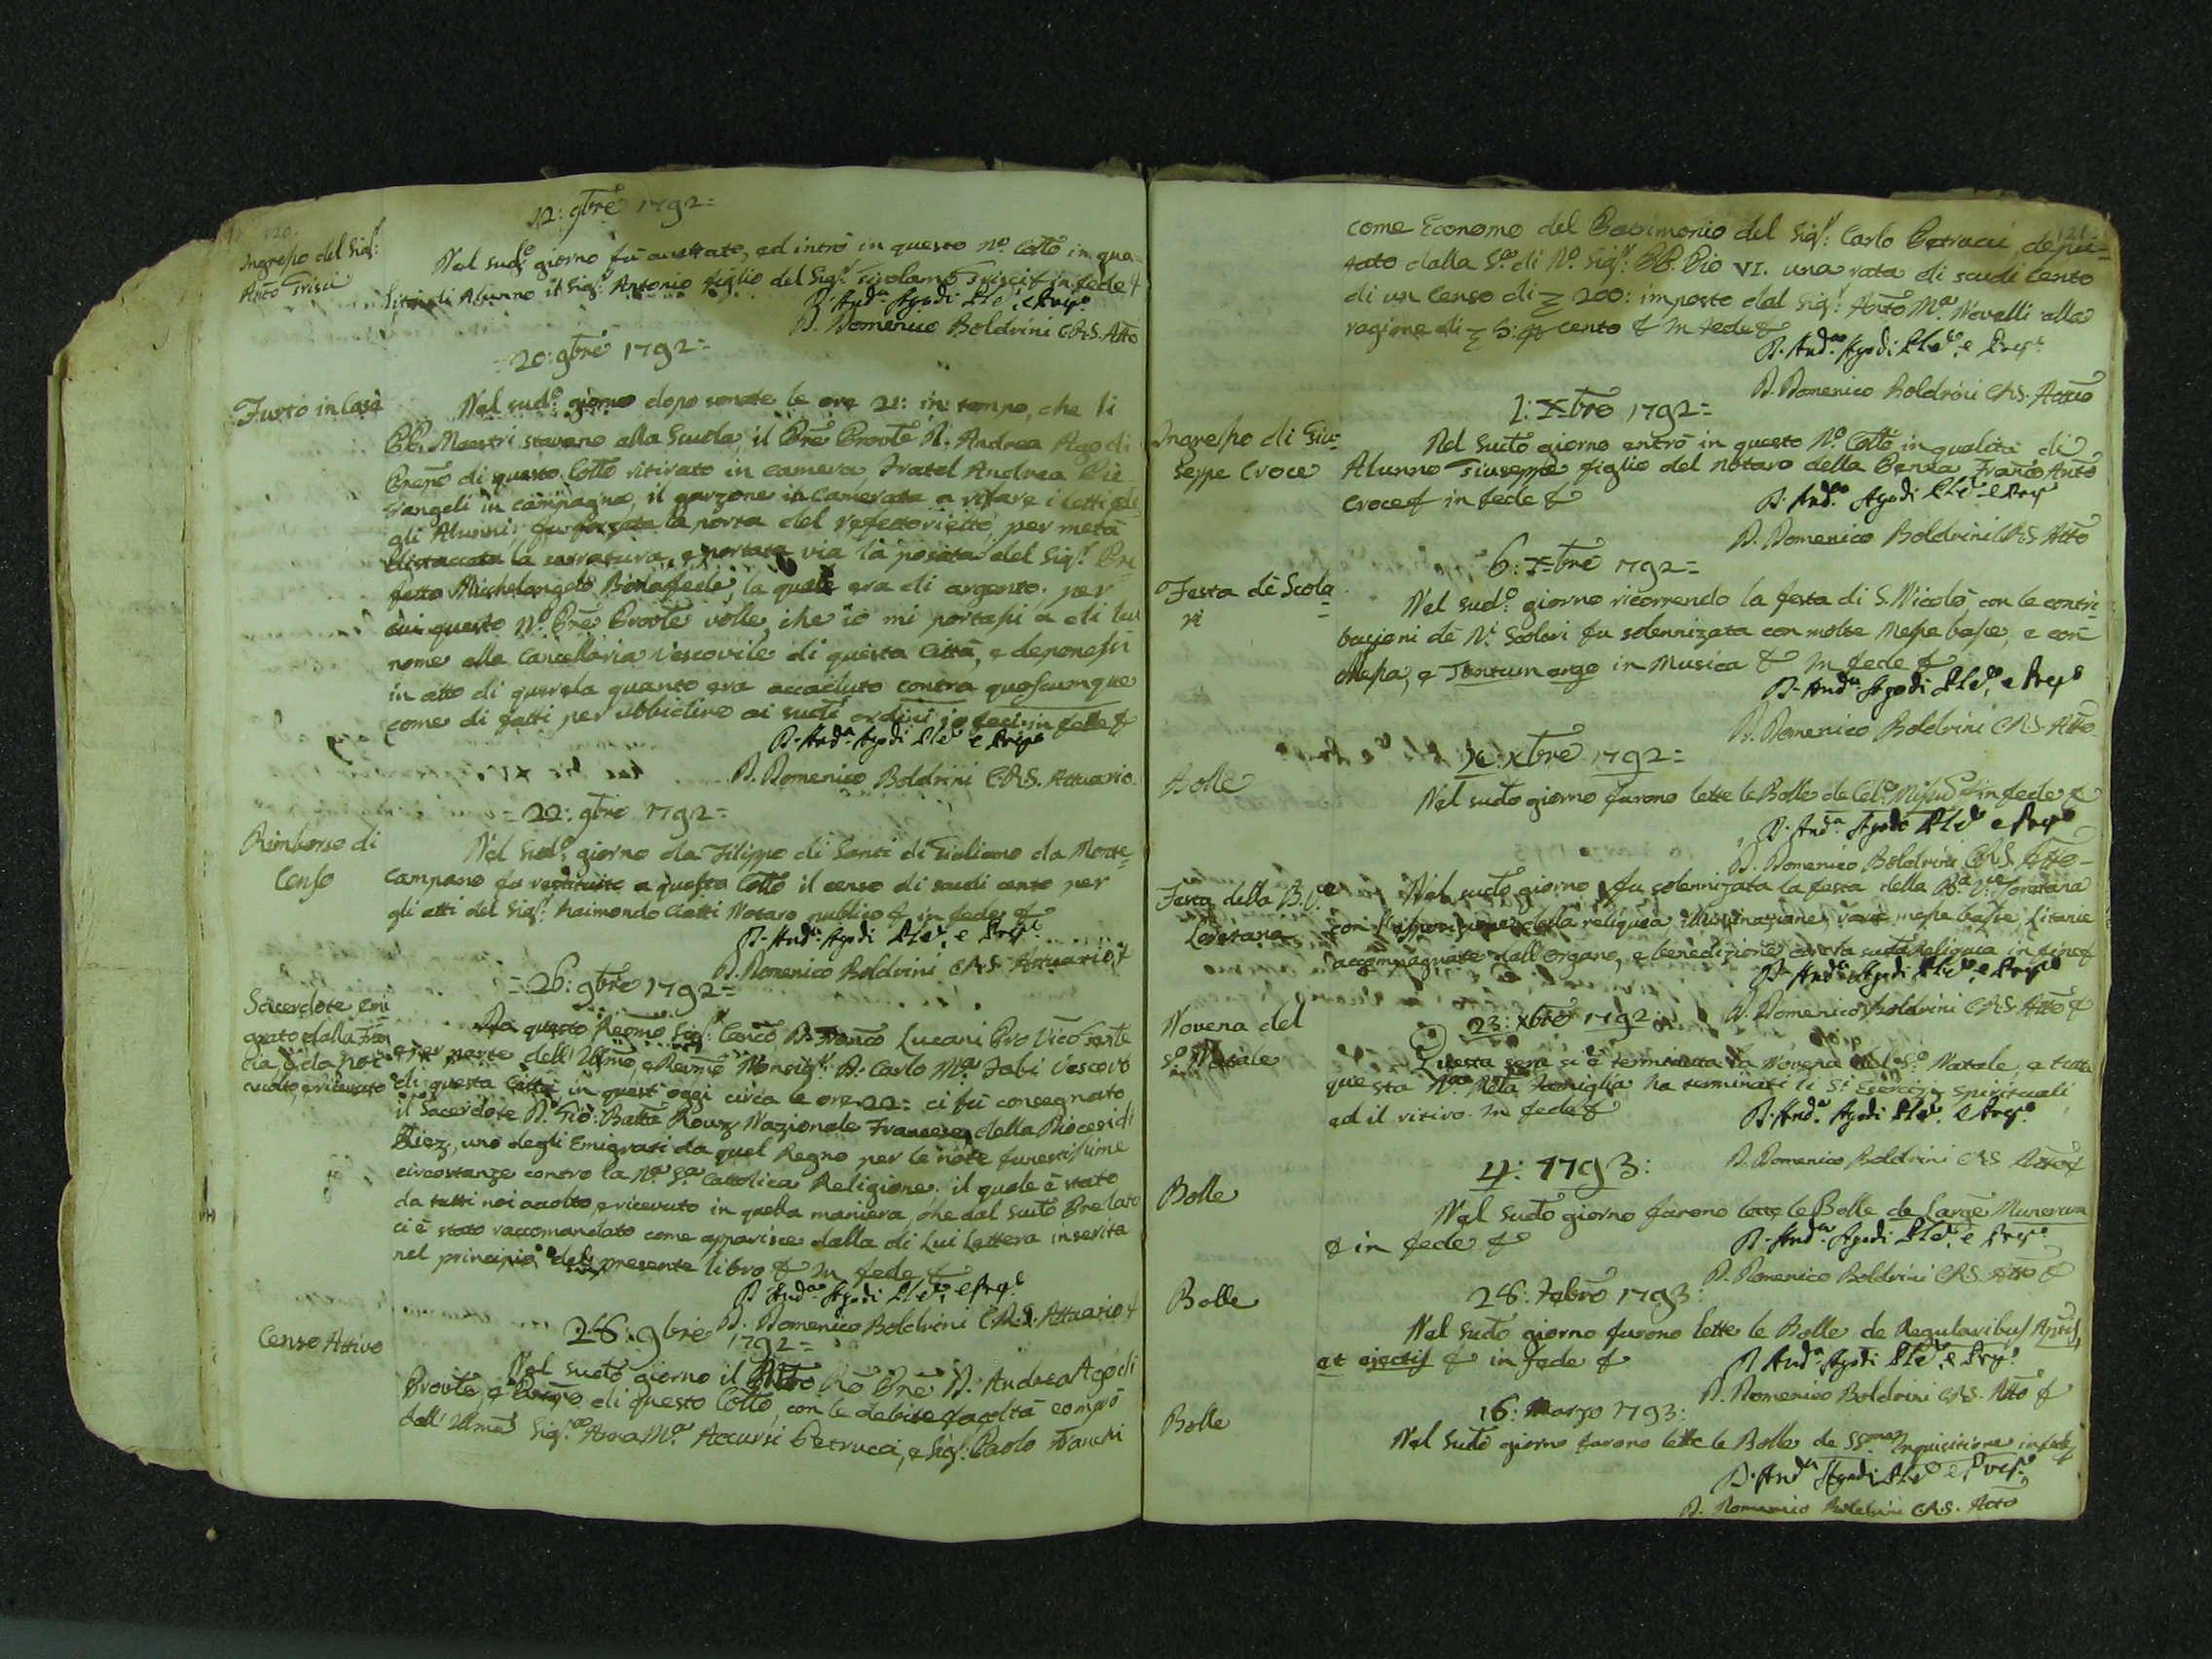 120.
12: 9bre 1792=
Ingresso del Sig.r
Anto Trisci
Nel sud.o giorno fù accettato, ed intrò in questo N.o Collo in qua-
lità di Alunno il Sig.r Antonio figlio del Sig.r Girolamo Trisci & in fede &
D. And.a Agodi P.le e Prep.o
D. Domenico Boldrini C.R.S. Atto
=20: 9bre 1792=
Furto in Casa
Nel sud.o giorno dopo sonate le ore 21: in tempo, che li
PP. Maestri stavano alla Scuola, il Pre Provle D. Andrea Agodi
Prepo di questo Collo ritirato in camera, Fratel Andrea Pie-
vangeli in campagna, il garzone in Camerata a rifare i letti de-
gli Alunni; fu forzata la porta del refettorietto, per metà
distaccata la serratura, e portata via la posata del Sig.r Pre-
fetto Michelangelo Bonafede, la quale era di argento. per
cui questo N.o Pre Provle volle, che io mi portassi a di lui
nome alla Cancellaria Vescovile di questa Città, e deponessi
in atto di querela quanto era accaduto contra quoscumque
come di fatti per ubbidire ai sudti ordini io feci. in fede &
D. And.a Agodi P.le e Prep.o
D. Domenico Boldrini C.R.S. Attuario
=22: 9bre 1792=
Rimborso di
Censo
Nel Sud.o giorno da Filippo di Santi di Giuliano da Monte-
campano fu restituito a questo Collo il censo di scudi cento per
gli atti del Sig.r Raimondo Ciatti Notaro publico & in fede &
D. And.a Agodi P.le e Prep.o
D. Domenico Boldrini C.R.S. Attuario &
=26: 9bre 1792=
Sacerdote emi
grato dalla Fran
cia, e da noi ac
colto, e ricevuto
Da questo Revmo Sig.r Canco D. Franco Lucani Pro Vico Gnle
e per parte dell' Illmo, e Revmo Monsig.r D. Carlo M.a Fabi Vescovo
di questa Città in quest' oggi circa le ore 22= ci fù consegnato
il Sacerdote D. Gio: Batta Rouz Nazionale Francese, della Diocesi di
Riez, uno degli Emigrati da quel Regno per le note funestissime
circostanze contro la N.a S.a Cattolica Religione. il quale è stato
da tutti noi accolto, e ricevuto in quella maniera, che dal sudto Prelato
ci è stato raccomandato come apparisce dalla di Lui Lettera inserita
nel principio del presente libro & In fede &
D. And.a Agodi P.le e Prep.o
D. Domenico Boldrini C.R.S. Attuario &
28: 9bre 1792=
Censo Attivo
Nel sudto giorno il Rdo Pre D. Andrea Agodi
Provle, e Prepo di questo Collo, con le debite facoltà comprò
dall' Illma Sig.ra Anna M.a Accursi Petrucci, e Sig.r Paolo Franchi
121
come Economo del Patrimonio del Sig.r Carlo Petrucci, depu-
tato dalla S.tà di N.o Sig.re PP. Pio VI. una rata di scudi Cento
di un Censo di 200: imposto dal Sig.r Anto M.a Novelli alla
ragione di 5: per cento & In fede &
D. And.a Agodi P.le e Prep.o
D. Domenico Boldrini C.R.S. Attuo
1: Xbre 1792=
Ingresso di Giu-
seppe Croce
Nel Sudto giorno entrò in questo N.o Collo in qualità di
Alunno Giuseppe figlio del Notaro della Penna Franco Anto
Croce & in fede &
D. And.a Agodi P.le e Prep.o
D. Domenico Boldrini C.R.S. Atto
6: Xbre 1792=
Festa de Scola-
ri
Nel sud.o giorno ricorrendo la festa di S. Nicolò, con le contri-
buzioni de N.i Scolari fu solennizata con molte Messe basse, e con
Messa, e Tantum ergo in Musica & In fede &
D. And.a Agodi P.le e Prep.o
D. Domenico Boldrini C.R.S. Atto
X: Xbre 1792=
Bolle
Nel sudto giorno furono lette le Bolle de Cel.e Missar. & in fede &
D. And.a Agodi P.le e Prep.o
D. Domenico Boldrini C.R.S. Atto
Festa della B.V.
Loretana
Nel sudto giorno fu solennizata la festa della B.a V.e Loretana
con l'esposizione della reliquia, illuminazione, varie messe basse, litanie
accompagnate dall'organo, e benedizione con la sudta reliquia in fine &
D. And.a Agodi P.le e Prep.o
D. Domenico Boldrini C.R.S. Atto &
23: Xbre 1792:
Novena del
S.o Natale
Questa sera si è terminata la Novena del S.o Natale, e tutta
questa N.a Rel.a Famiglia ha terminati li S.i Esercizj Spirituali,
ed il ritiro. In fede &
D. And.a Agodi P.le e Prep.o
D. Domenico Boldrini C.R.S. Atto &
4: 1793:
Bolle
Nel Sudto giorno furono lette le Bolle de Large Munerum
& in fede &
D. And.a Agodi P.le e Prep.o
D. Domenico Boldrini C.R.S. Atto &
28: Febro 1793:
Bolle
Nel sudto giorno furono lette le Bolle de Regularibus
et ejectis & in fede &
D. And.a Agodi P.le e Prep.o
D. Domenico Boldrini C.R.S. Atto &
16: Marzo 1793:
Bolle
Nel Sudto giorno furono lette le Bolle de SSma Inquisitione in fede &
D. And.a Agodi P.le e Prep.o
D. Domenico Boldrini C.R.S. Atto